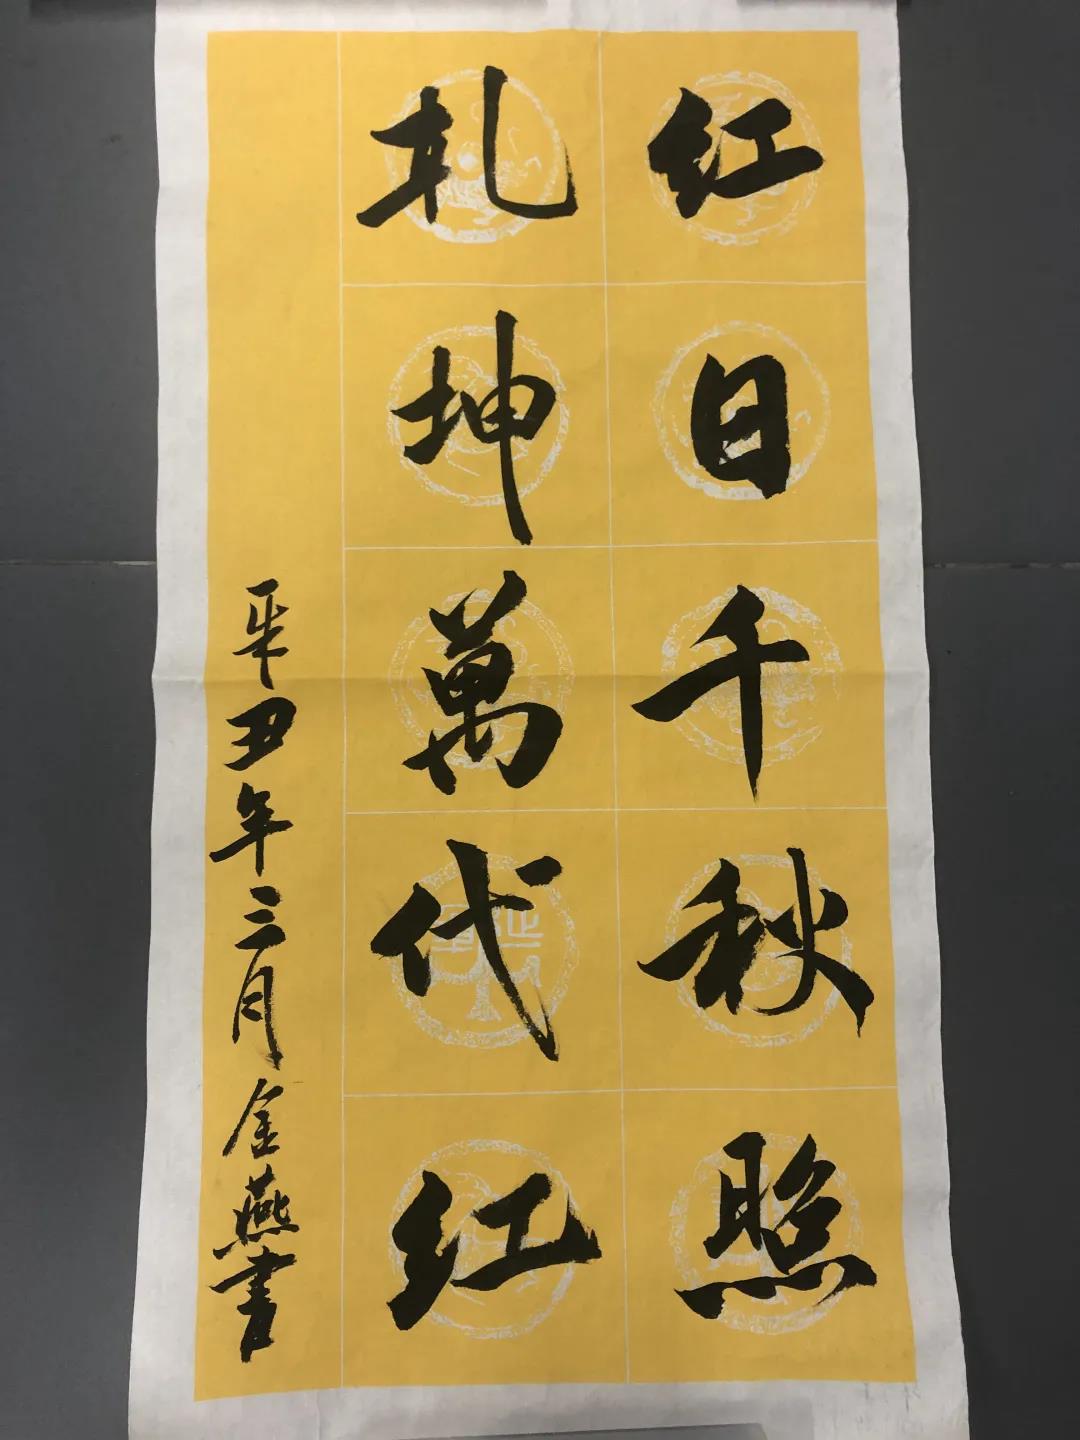 红日千秋照
札坤萬代红
辛丑年三月金燕書